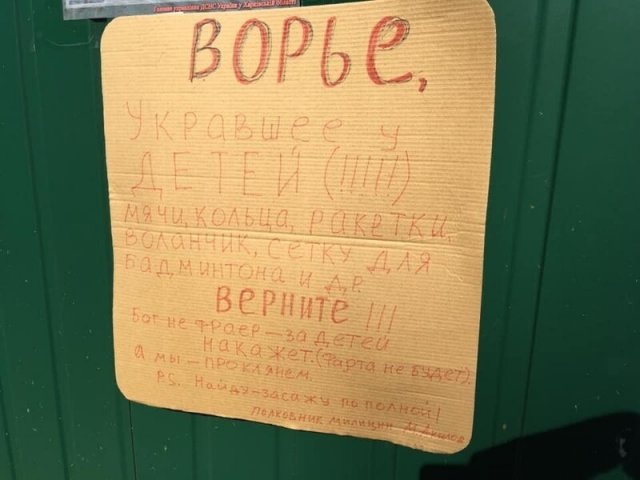 Головне управління ДСНС України у Харківській області
ВОРЬЕ,
Укравшее у
ДЕТЕЙ (!!!!!)
мячи, кольца, ракетки,
воланчик, сетку для
бадминтона и др.
ВЕРНИТЕ !!!
Бог не фраер – за детей
накажет. (Фарта не будет).
А мы – проклянем.
P.S. Найду – засажу по полной!
Полковник милиции